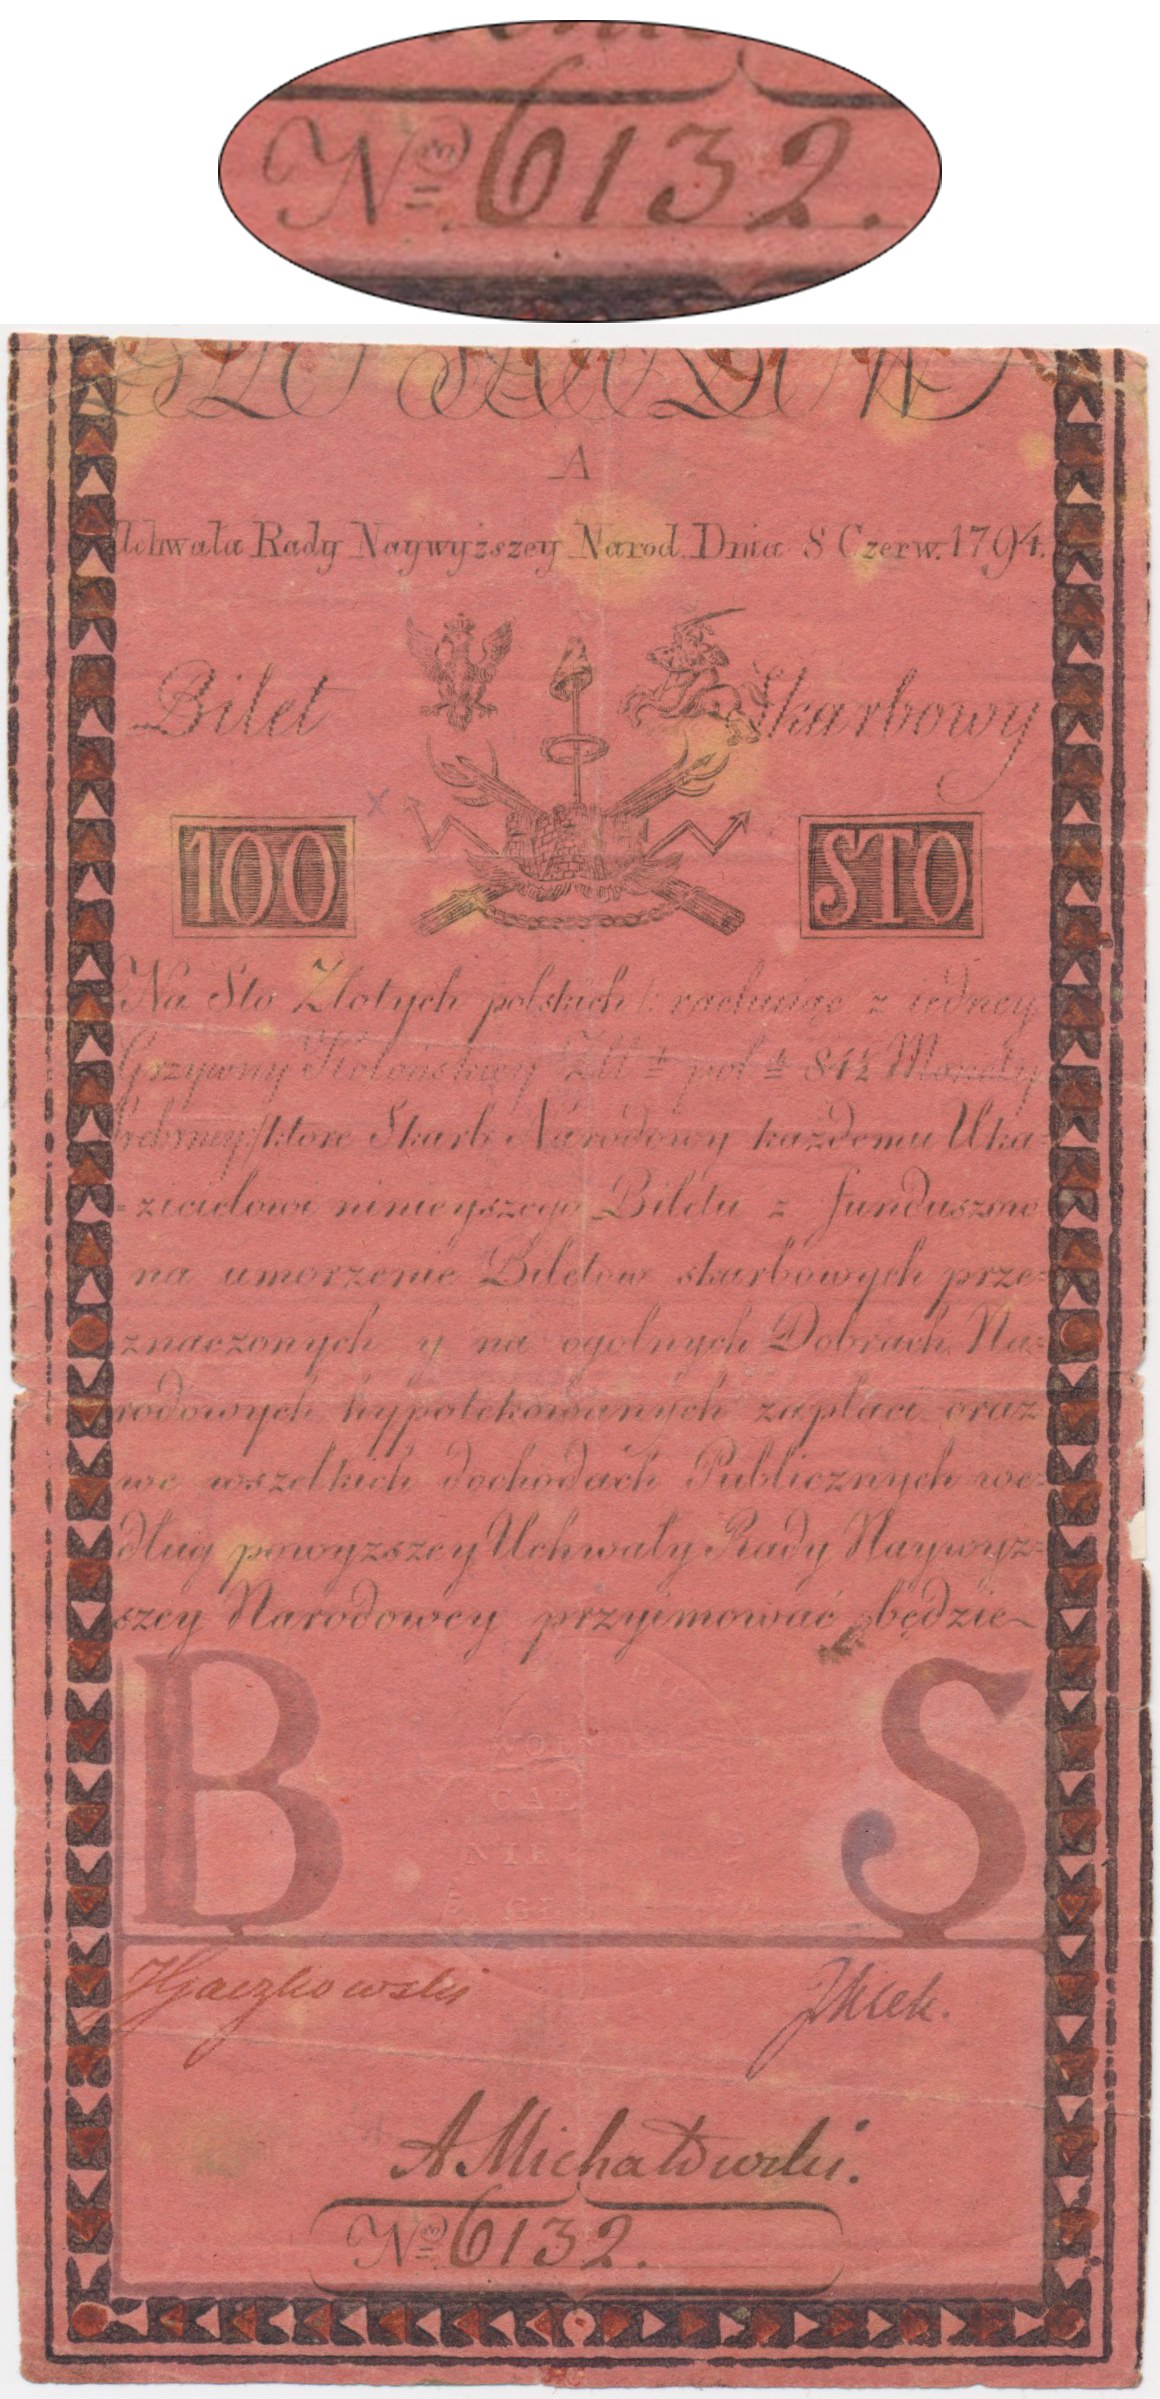 No 6132.
A
Uchwała Rady Naywyższey Narod. Dnia 8 Czerw. 1794.
Bilet Skarbowy
100 STO
Na Sto Złotych polskich /: rachuiąc z iedney
Grzywny Kolońskiey Złł: pol: 84½ Monety
srebrney / ktore Skarb Narodowy każdemu Uka=
=zicielowi ninieyszego Biletu z funduszow
na umorzenie Biletow skarbowych prze=
znaczonych y na ogolnych Dobrach Na=
rodowych hypotekowanych zapłaci oraz
we wszelkich dochodach Publicznych we=
dług powyzszey Uchwały Rady Naywyż=
szey Narodowey przyimować będzie
B S
A Michałowski.
No 6132.